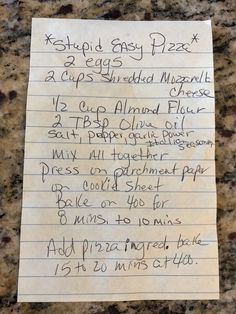 *Stupid Easy Pizza*
2 eggs
2 cups shredded Mozzarella
cheese
1/2 cup Almond Flour
2 TBsp Olive oil
salt, pepper, garlic power
Italian seasoning
Mix All together
Press on parchment paper
on cookie sheet
Bake on 400 for
8 mins. to 10 mins
Add pizza ingred. bake
15 to 20 mins at 400.